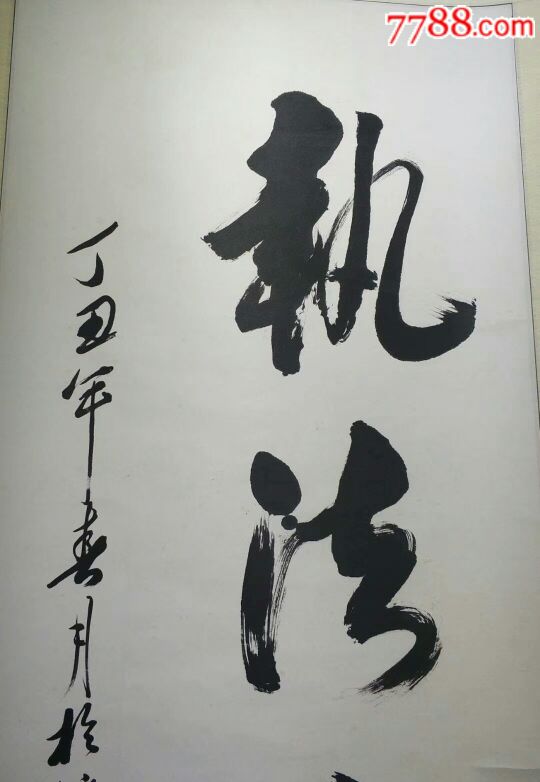 7788.com
執法
丁丑年春月於